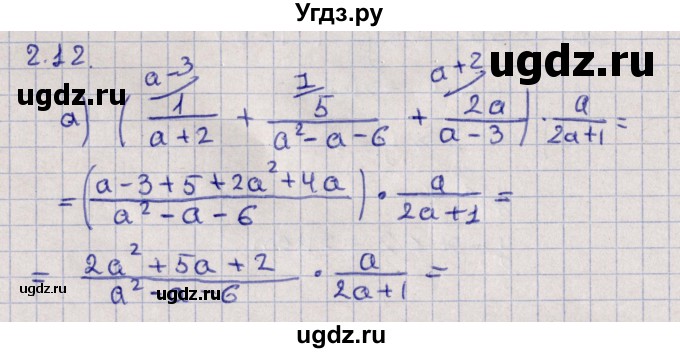 Угдз.ру
2.12.
ugdz.ru ugdz.ru ugdz.ru
a) ( 1/(a+2) ^(a-3) + 5/(a²-a-6) ^1 + 2a/(a-3) ^(a+2) ) · a/(2a+1) =
= ( (a-3+5+2a²+4a)/(a²-a-6) ) · a/(2a+1) =
= (2a²+5a+2)/(a²-a-6) · a/(2a+1) =
ugdz.ru ugdz.ru
ugdz.ru